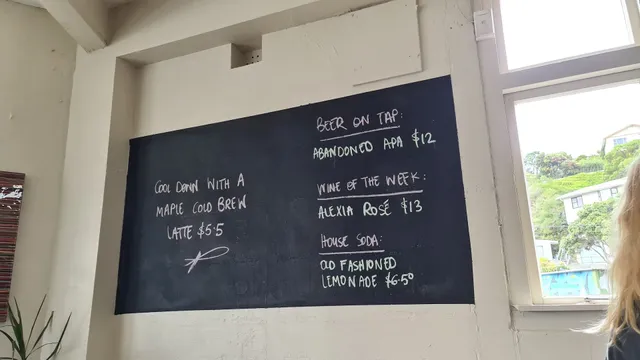 COOL DOWN WITH A
MAPLE COLD BREW
LATTE $5.5
BEER ON TAP:
ABANDONED APA $12
WINE OF THE WEEK:
ALEXIA ROSÉ $13
HOUSE SODA:
OLD FASHIONED
LEMONADE $6.50